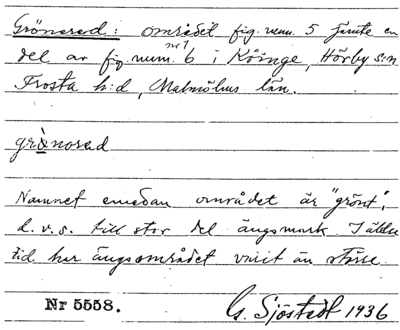 Grönorad: området fig. num. 5 jämte en
del av fig. num. nr 1 6 i Köinge, Hörby s:n
Frosta h:d, Malmöhus län.
grö̀norad
Namnet emedan området är "grönt",
d.v.s. till stor del ängsmark I äldre
tid har ängsområdet varit än större
Nr 5558.
G. Sjöstedt 1936